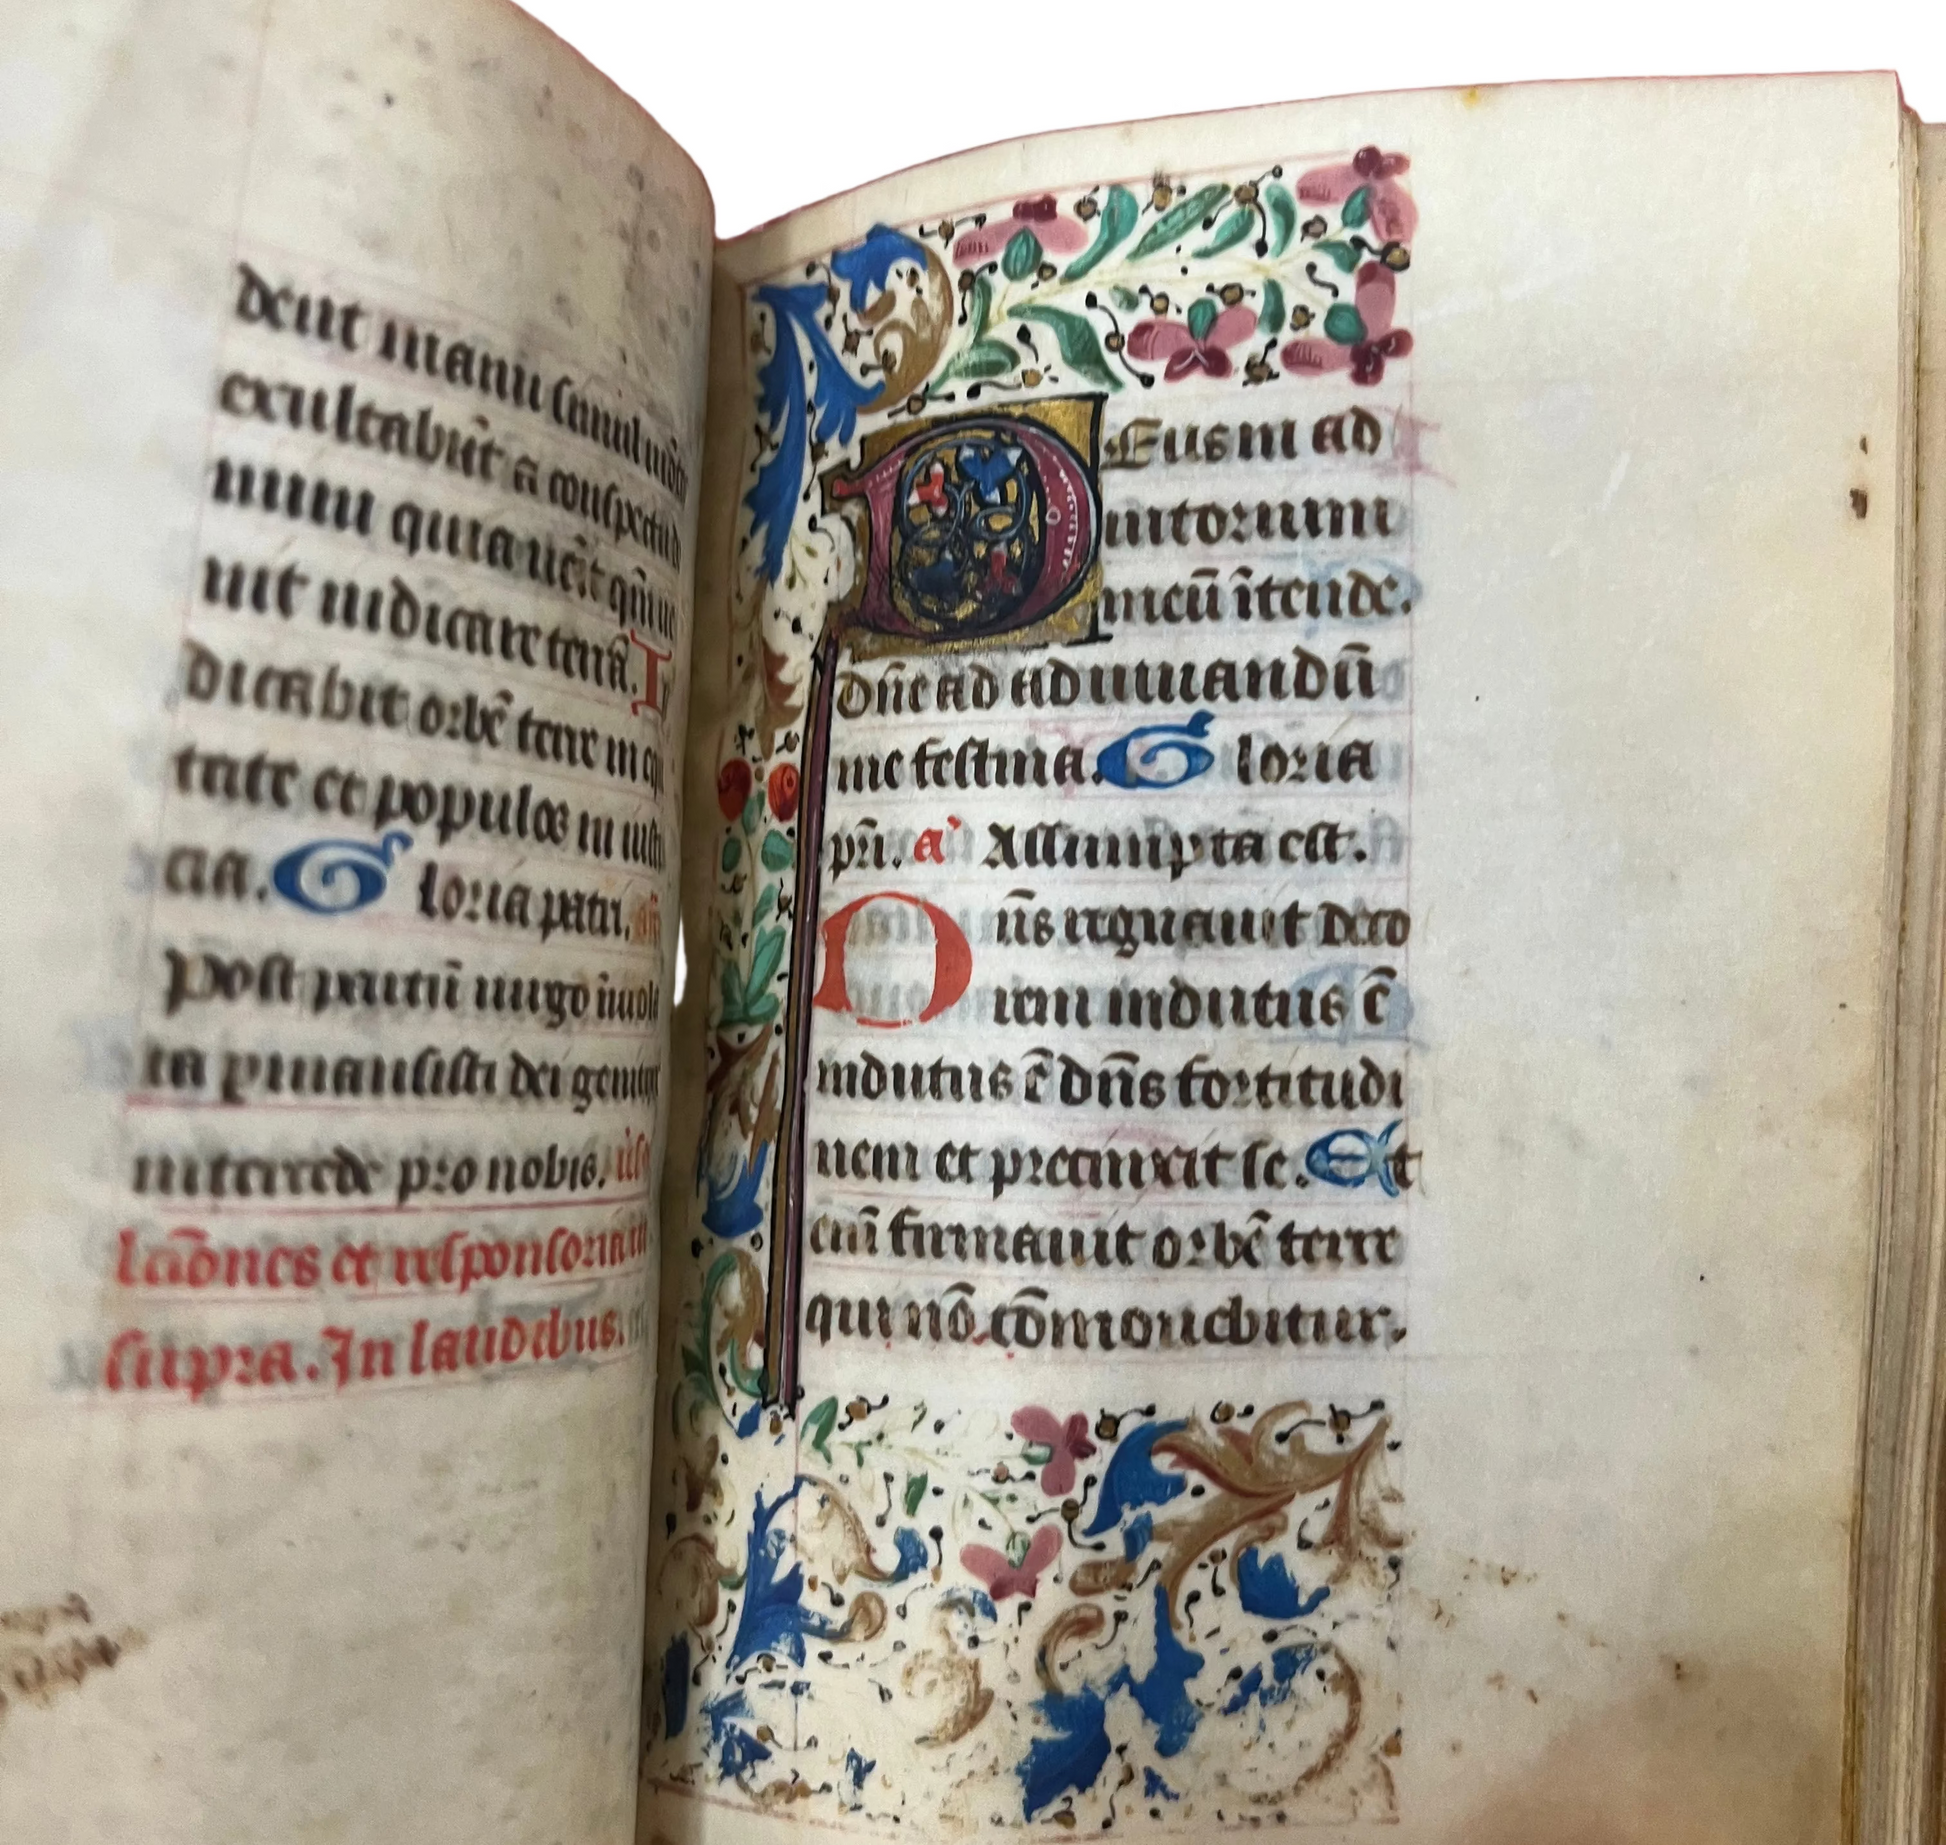 dent manu simul mōtes
exultabūt a conspectu d
nimi quia uēit qm̄ ue
nit iudicare terrā. Iu
dicabit orbē terre in equi
tate et populos in iusti
cia. Gloria patri. añ
Post partū uirgo īuiola
ta pmansisti dei genitrix
intercede pro nobis.
Lcōnes et responsoria ut
supra. In laudibus.
DEus in ad
iutorium
meū ītende.
dn̄e ad adiuuandū
me festina. Gloria
pr̄i. a' Assumpta est.
Dn̄s regnauit deco
rem indutus ē
indutus ē dn̄s fortitudi
nem et precinxit se. Et
eni firmauit orbē terre
qui nō cōmouebitur.